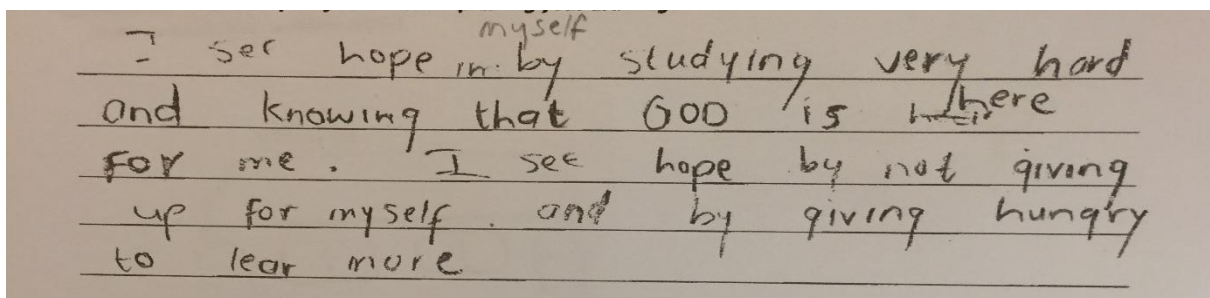 I see hope in myself by studying very hard
and knowing that GOD is here
for me. I see hope by not giving
up for myself. and by giving hungry
to lear more